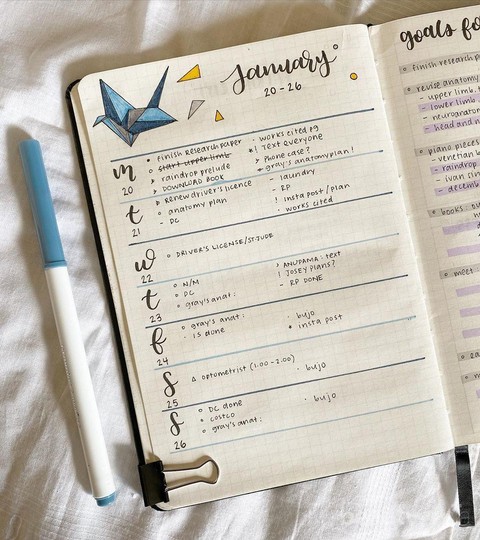 January
20-26
m
20
finish research paper
start upper limb
raindrop prelude
DOWNLOAD BOOK
works cited pg
! Text everyone
phone case?
gray's anatomy plan!
t
21
renew driver's licence
anatomy plan
- DC
- laundry
- RP
! insta post / plan
works cited
w
22
DRIVER'S LICENSE/ST.JUDE
t
23
N/M
DC
gray's anat:
> ANUPAMA: text
! JOSEY plans?
- RP DONE
f
24
gray's anat:
- is done
bujo
insta post
s
25
optometrist (1:00-2:00)
bujo
s
26
DC done
costco
gray's anat:
bujo
goals fo
finish research p
revise anatomy
- upper limb, t
- lower limb
- neuroanato
- head and n
piano pieces
- venetian b
- raindrop
- ivan sin
- decemb
books
meet